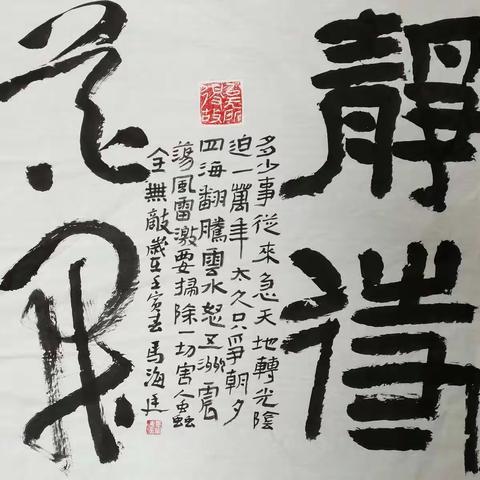 靜待
花開
以无所得故
多少事從來急天地轉光陰
迫一萬年太久只爭朝夕
四海翻騰雲水怒五洲震
蕩風雷激要掃除一切害人蟲
全無敵歲在壬寅 馬海廷